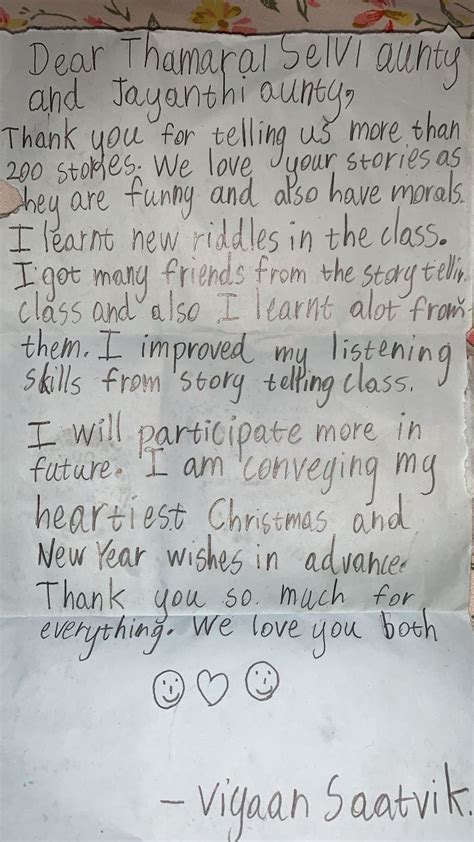 Dear Thamarai Selvi aunty
and Jayanthi aunty,
Thank you for telling us more than
200 stories. We love your stories as
they are funny and also have morals.
I learnt new riddles in the class.
I got many friends from the story tellin
class and also I learnt alot from
them. I improved my listening
skills from story telling class.
I will participate more in
future. I am conveying my
heartiest Christmas and
New Year wishes in advance.
Thank you so. much for
everything. We love you both
- Viyaan Saatvik.